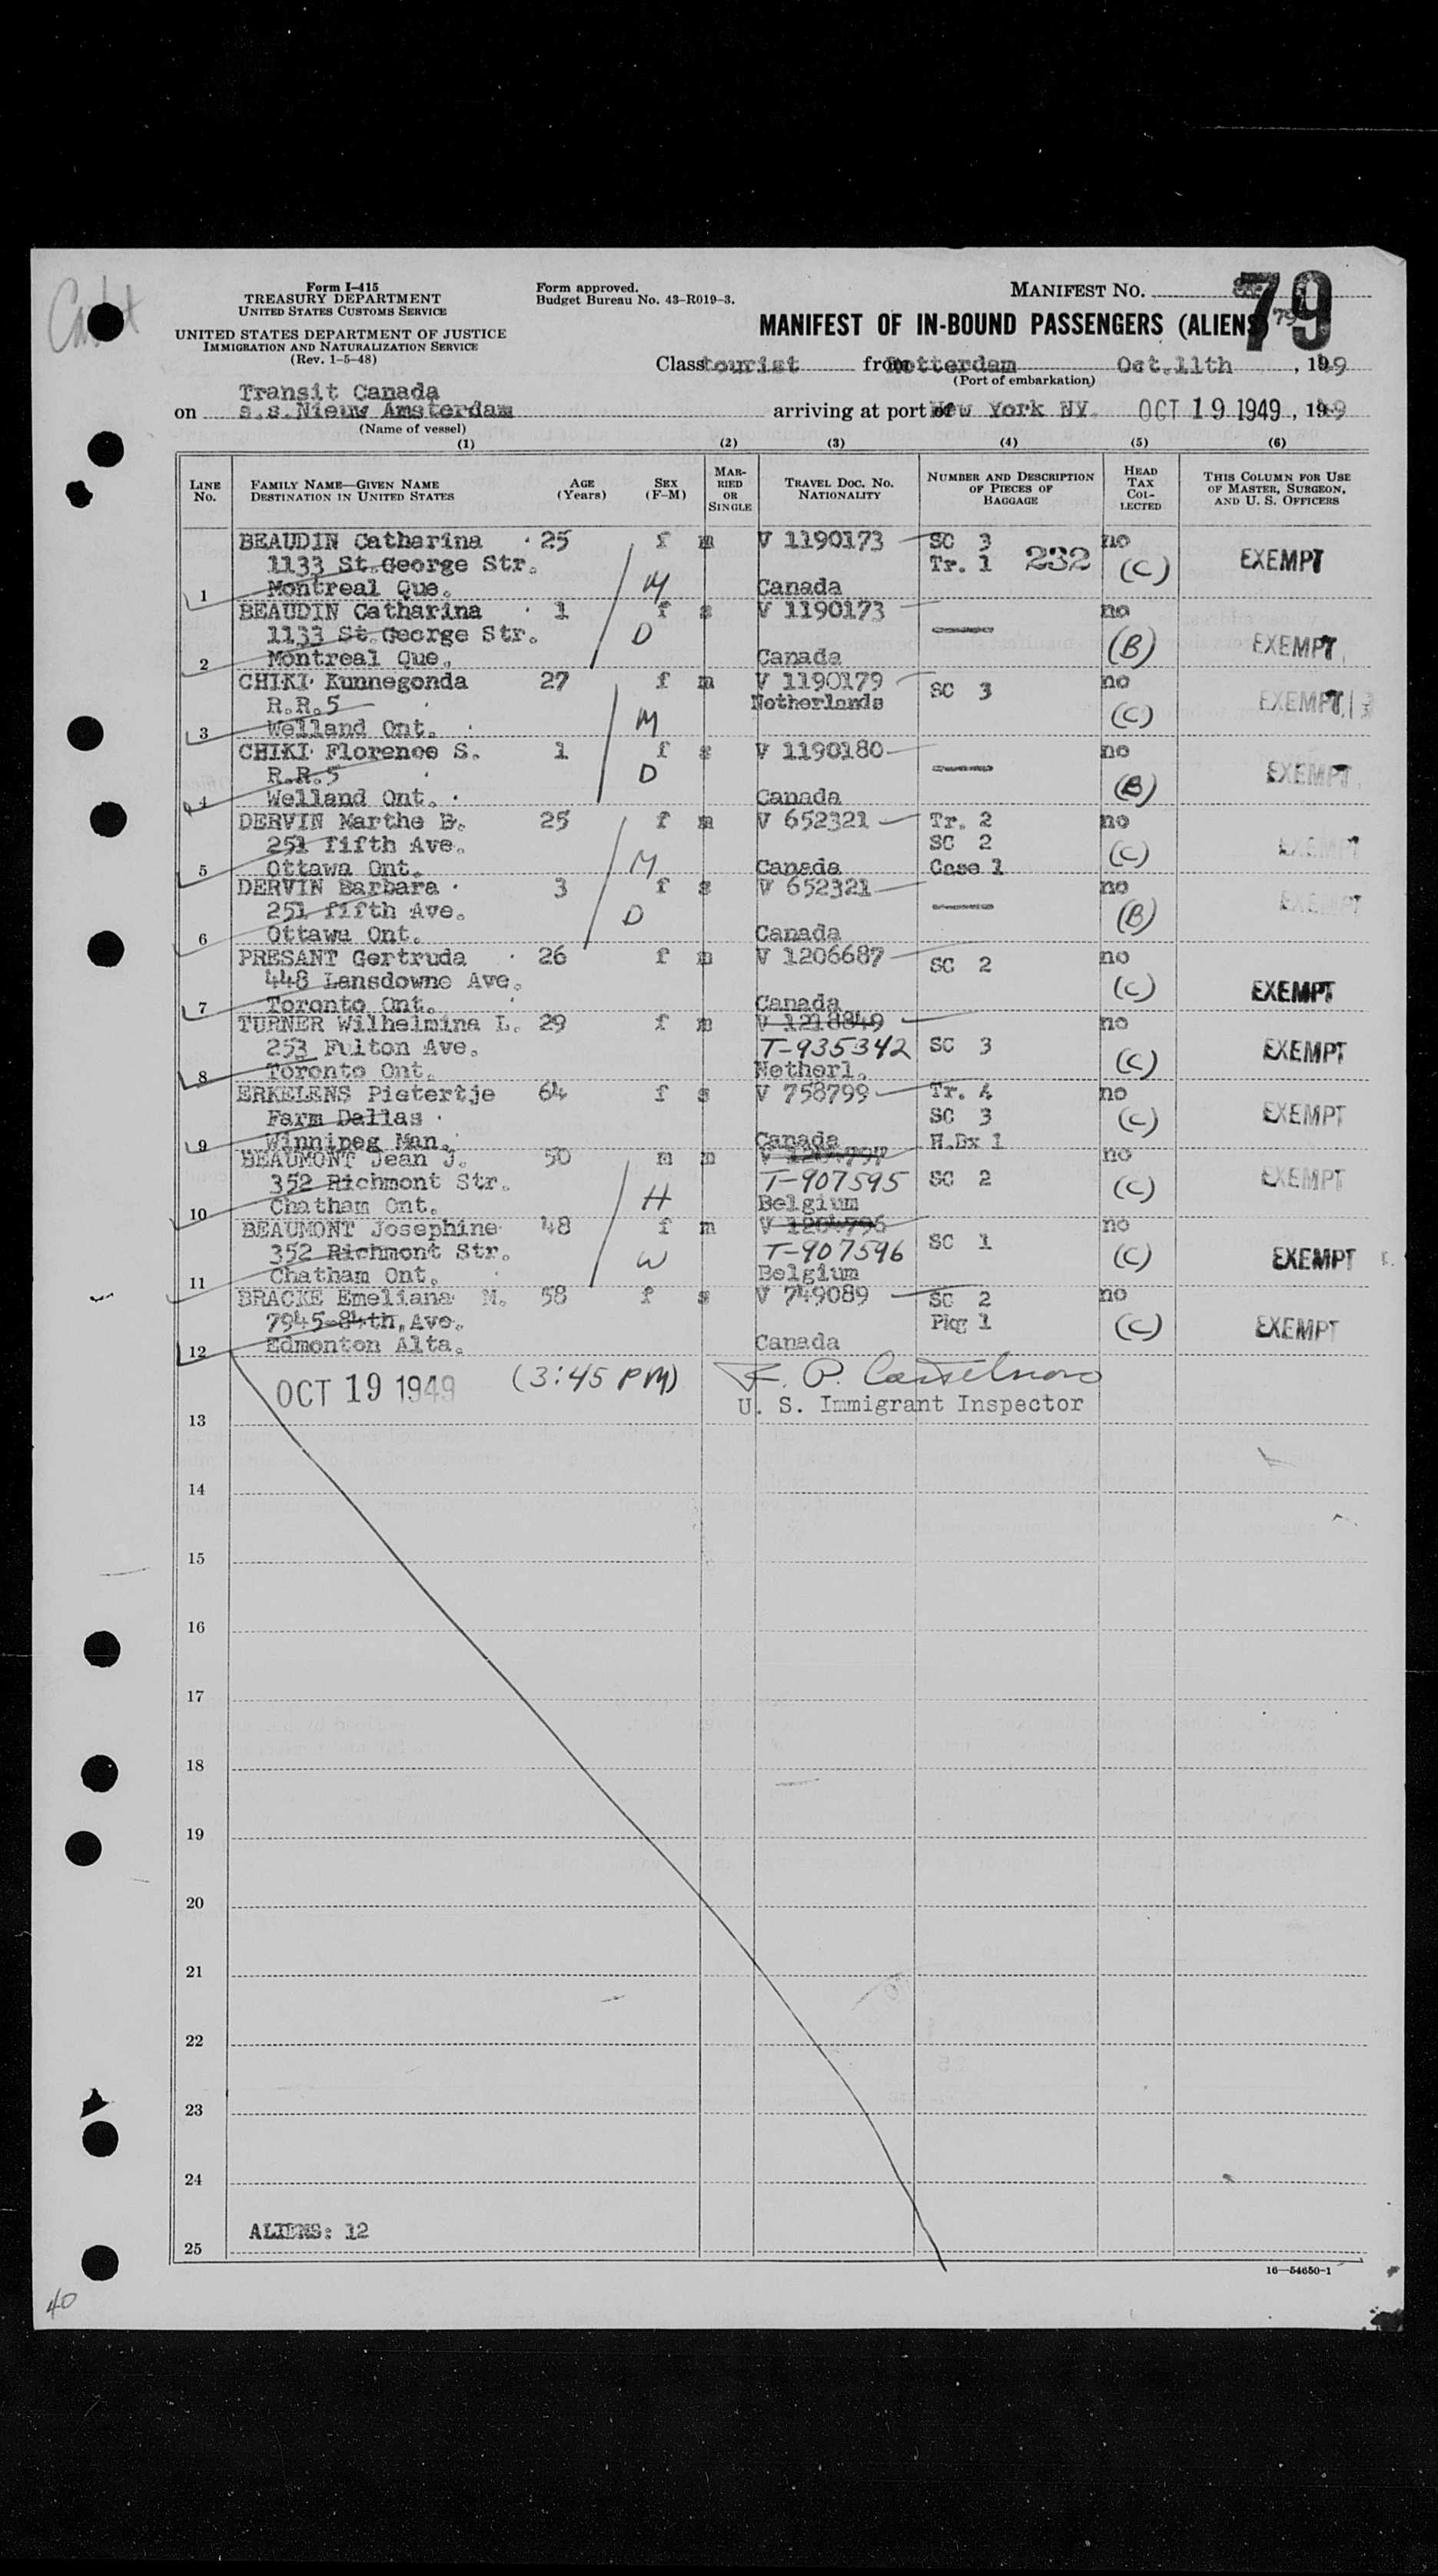 Form I-415
TREASURY DEPARTMENT
UNITED STATES CUSTOMS SERVICE
UNITED STATES DEPARTMENT OF JUSTICE
IMMIGRATION AND NATURALIZATION SERVICE
(Rev. 1-5-48)
Form approved.
Budget Bureau No. 43-R019-3.
MANIFEST NO. 79
MANIFEST OF IN-BOUND PASSENGERS (ALIENS) 79
Class tourist from Rotterdam Oct.11th, 1949
(Port of embarkation)
Transit Canada
on s.s.Nieuw Amsterdam arriving at port of New York NY. OCT 19 1949, 1949
(Name of vessel)
(1) (2) (3) (4) (5) (6)
LINE No. FAMILY NAME—GIVEN NAME DESTINATION IN UNITED STATES AGE (Years) SEX (F-M) MARRIED OR SINGLE TRAVEL DOC. NO. NATIONALITY NUMBER AND DESCRIPTION OF PIECES OF BAGGAGE HEAD TAX COLLECTED THIS COLUMN FOR USE OF MASTER, SURGEON, AND U. S. OFFICERS
BEAUDIN Catharina 25 f m V 1190173 SC 3 no
1133 St.George Str. Tr. 1 232 (C) EXEMPT
1 Montreal Que. M Canada
BEAUDIN Catharina 1 f s V 1190173 no
1133 St.George Str. D — (B) EXEMPT
2 Montreal Que. Canada
CHIKI Kunnegonda 27 f m V 1190179 SC 3 no
R.R.5 Netherlands EXEMPT
3 Welland Ont. M (C)
CHIKI Florence S. 1 f s V 1190180 no
R.R.5 D — EXEMPT
4 Welland Ont. Canada (B)
DERVIN Marthe B. 25 f m V 652321 Tr. 2 no
251 fifth Ave. SC 2 EXEMPT
5 Ottawa Ont. M Canada Case 1 (C)
DERVIN Barbara 3 f s V 652321 no
251 fifth Ave. D — (B) EXEMPT
6 Ottawa Ont. Canada
PRESANT Gertruda 26 f m V 1206687 SC 2 no
448 Lansdowne Ave. (C) EXEMPT
7 Toronto Ont. Canada
TURNER Wilhelmina L. 29 f m V 1218849 no
253 Fulton Ave. T-935342 SC 3 EXEMPT
8 Toronto Ont. Netherl. (C)
ERKELENS Pietertje 64 f s V 758799 Tr. 4 no
Farm Dallas SC 3 (C) EXEMPT
9 Winnipeg Man. Canada H.Bx 1
BEAUMONT Jean J. 50 m m V 1204797 no
352 Richmont Str. T-907595 SC 2 EXEMPT
10 Chatham Ont. H Belgium (C)
BEAUMONT Josephine 48 f m V 1204796 no
352 Richmont Str. W T-907596 SC 1 (C) EXEMPT
11 Chatham Ont. Belgium
BRACKE Emeliana M. 58 f s V 749089 SC 2 no
7945-84th, Ave. Pkg 1 (C) EXEMPT
12 Edmonton Alta. Canada
OCT 19 1949 (3:45 PM)
U. S. Immigrant Inspector
13
14
15
16
17
18
19
20
21
22
23
24
ALIENS: 12
25
16—54650-1
40